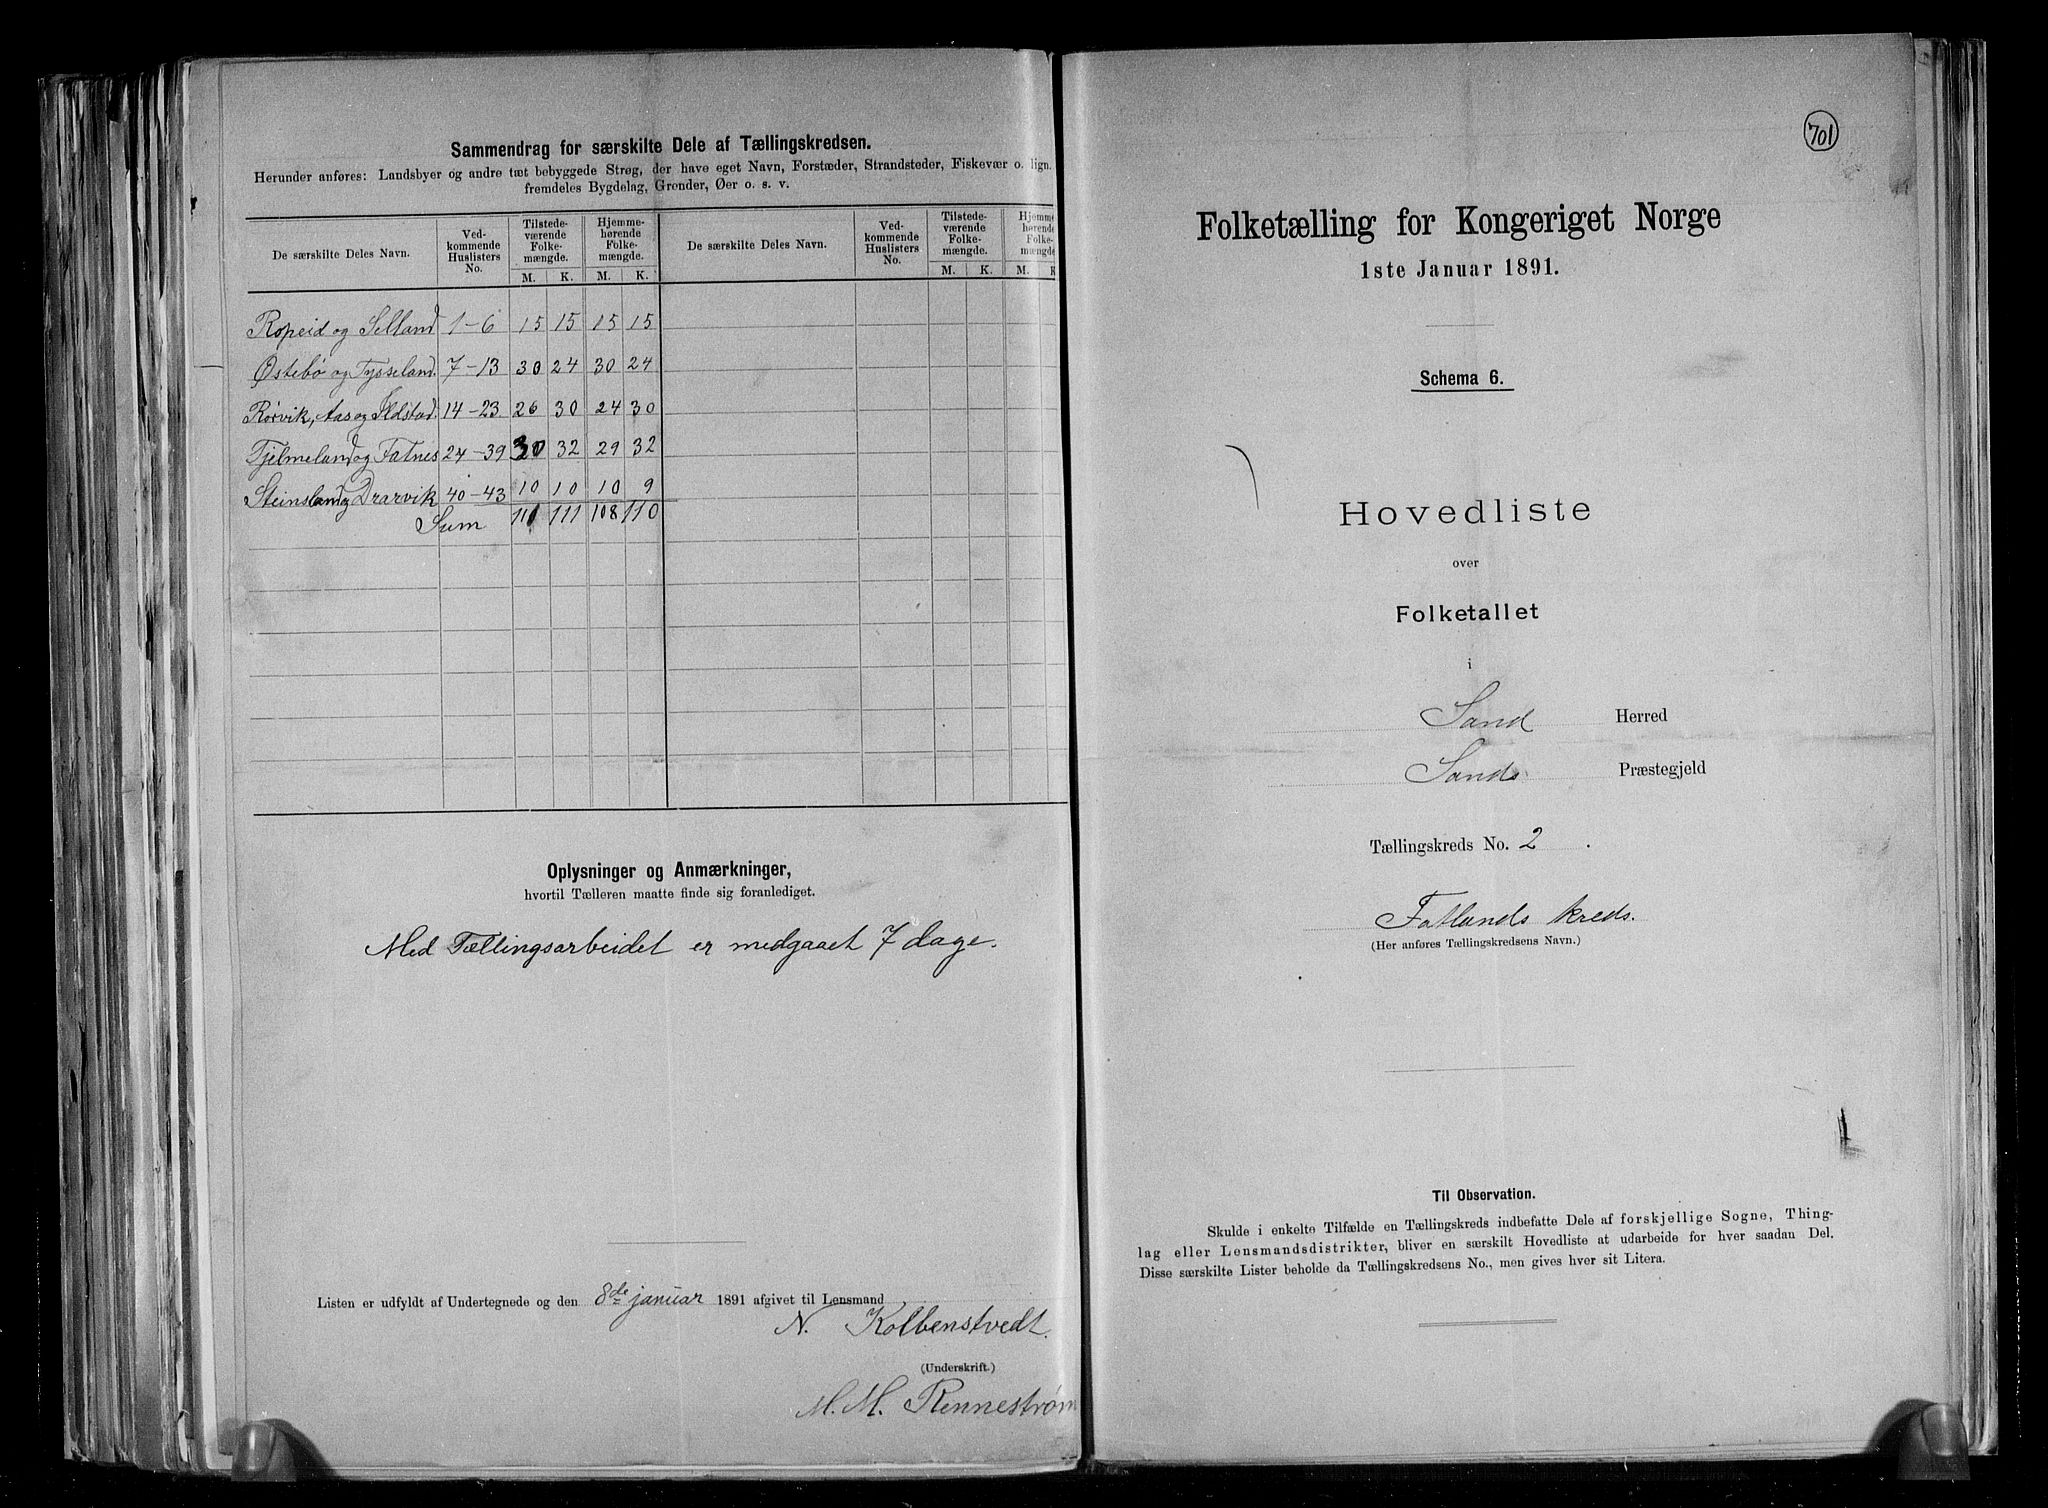 Sammendrag for særskilte Dele af Tællingskredsen.
Herunder anføres: Landsbyer og andre tæt bebyggede Strøg, der have eget Navn, Forstæder, Strandsteder, Fiskevær o. lign.
fremdeles Bygdelag, Grender, Øer o. s. v.
De særskilte Deles Navn. Ved-kommende Huslisters No. Tilstede-værende Folke-mængde. Hjemme-hørende Folke-mængde. De særskilte Deles Navn. Ved-kommende Huslisters No. Tilstede-værende Folke-mængde. Hjemme-hørende Folke-mængde
M. K. M. K. M. K. M. K
Ropeid og Selland 1-6 15 15 15 15
Østebø og Tysseland. 7-13 30 24 30 24
Rørvik, Aas og Ilstad. 14-23 26 30 24 30
Tjelmeland og Fatnes 24-39 30 32 29 32
Steinsland og Drarvik 40-43 10 10 10 9
Sum 111 111 108 110
Oplysninger og Anmærkninger,
hvortil Tælleren maatte finde sig foranlediget.
Med Tællingsarbeidet er medgaaet 7 dage.
Listen er udfyldt af Undertegnede og den 8de januar 1891 afgivet til Lensmand
N. Kolbenstvedt.
(Underskrift.)
M. M. Rennestrøm
701
Folketælling for Kongeriget Norge
1ste Januar 1891.
Schema 6.
Hovedliste
over
Folketallet
i
Sand Herred
Sands Præstegjeld
Tællingskreds No. 2.
Fatlands kreds.
(Her anføres Tællingskredsens Navn.)
Til Observation.
Skulde i enkelte Tilfælde en Tællingskreds indbefatte Dele af forskjellige Sogne, Thing-
lag eller Lensmandsdistrikter, bliver en særskilt Hovedliste at udarbeide for hver saadan Del.
Disse særskilte Lister beholde da Tællingskredsens No., men gives hver sit Litera.